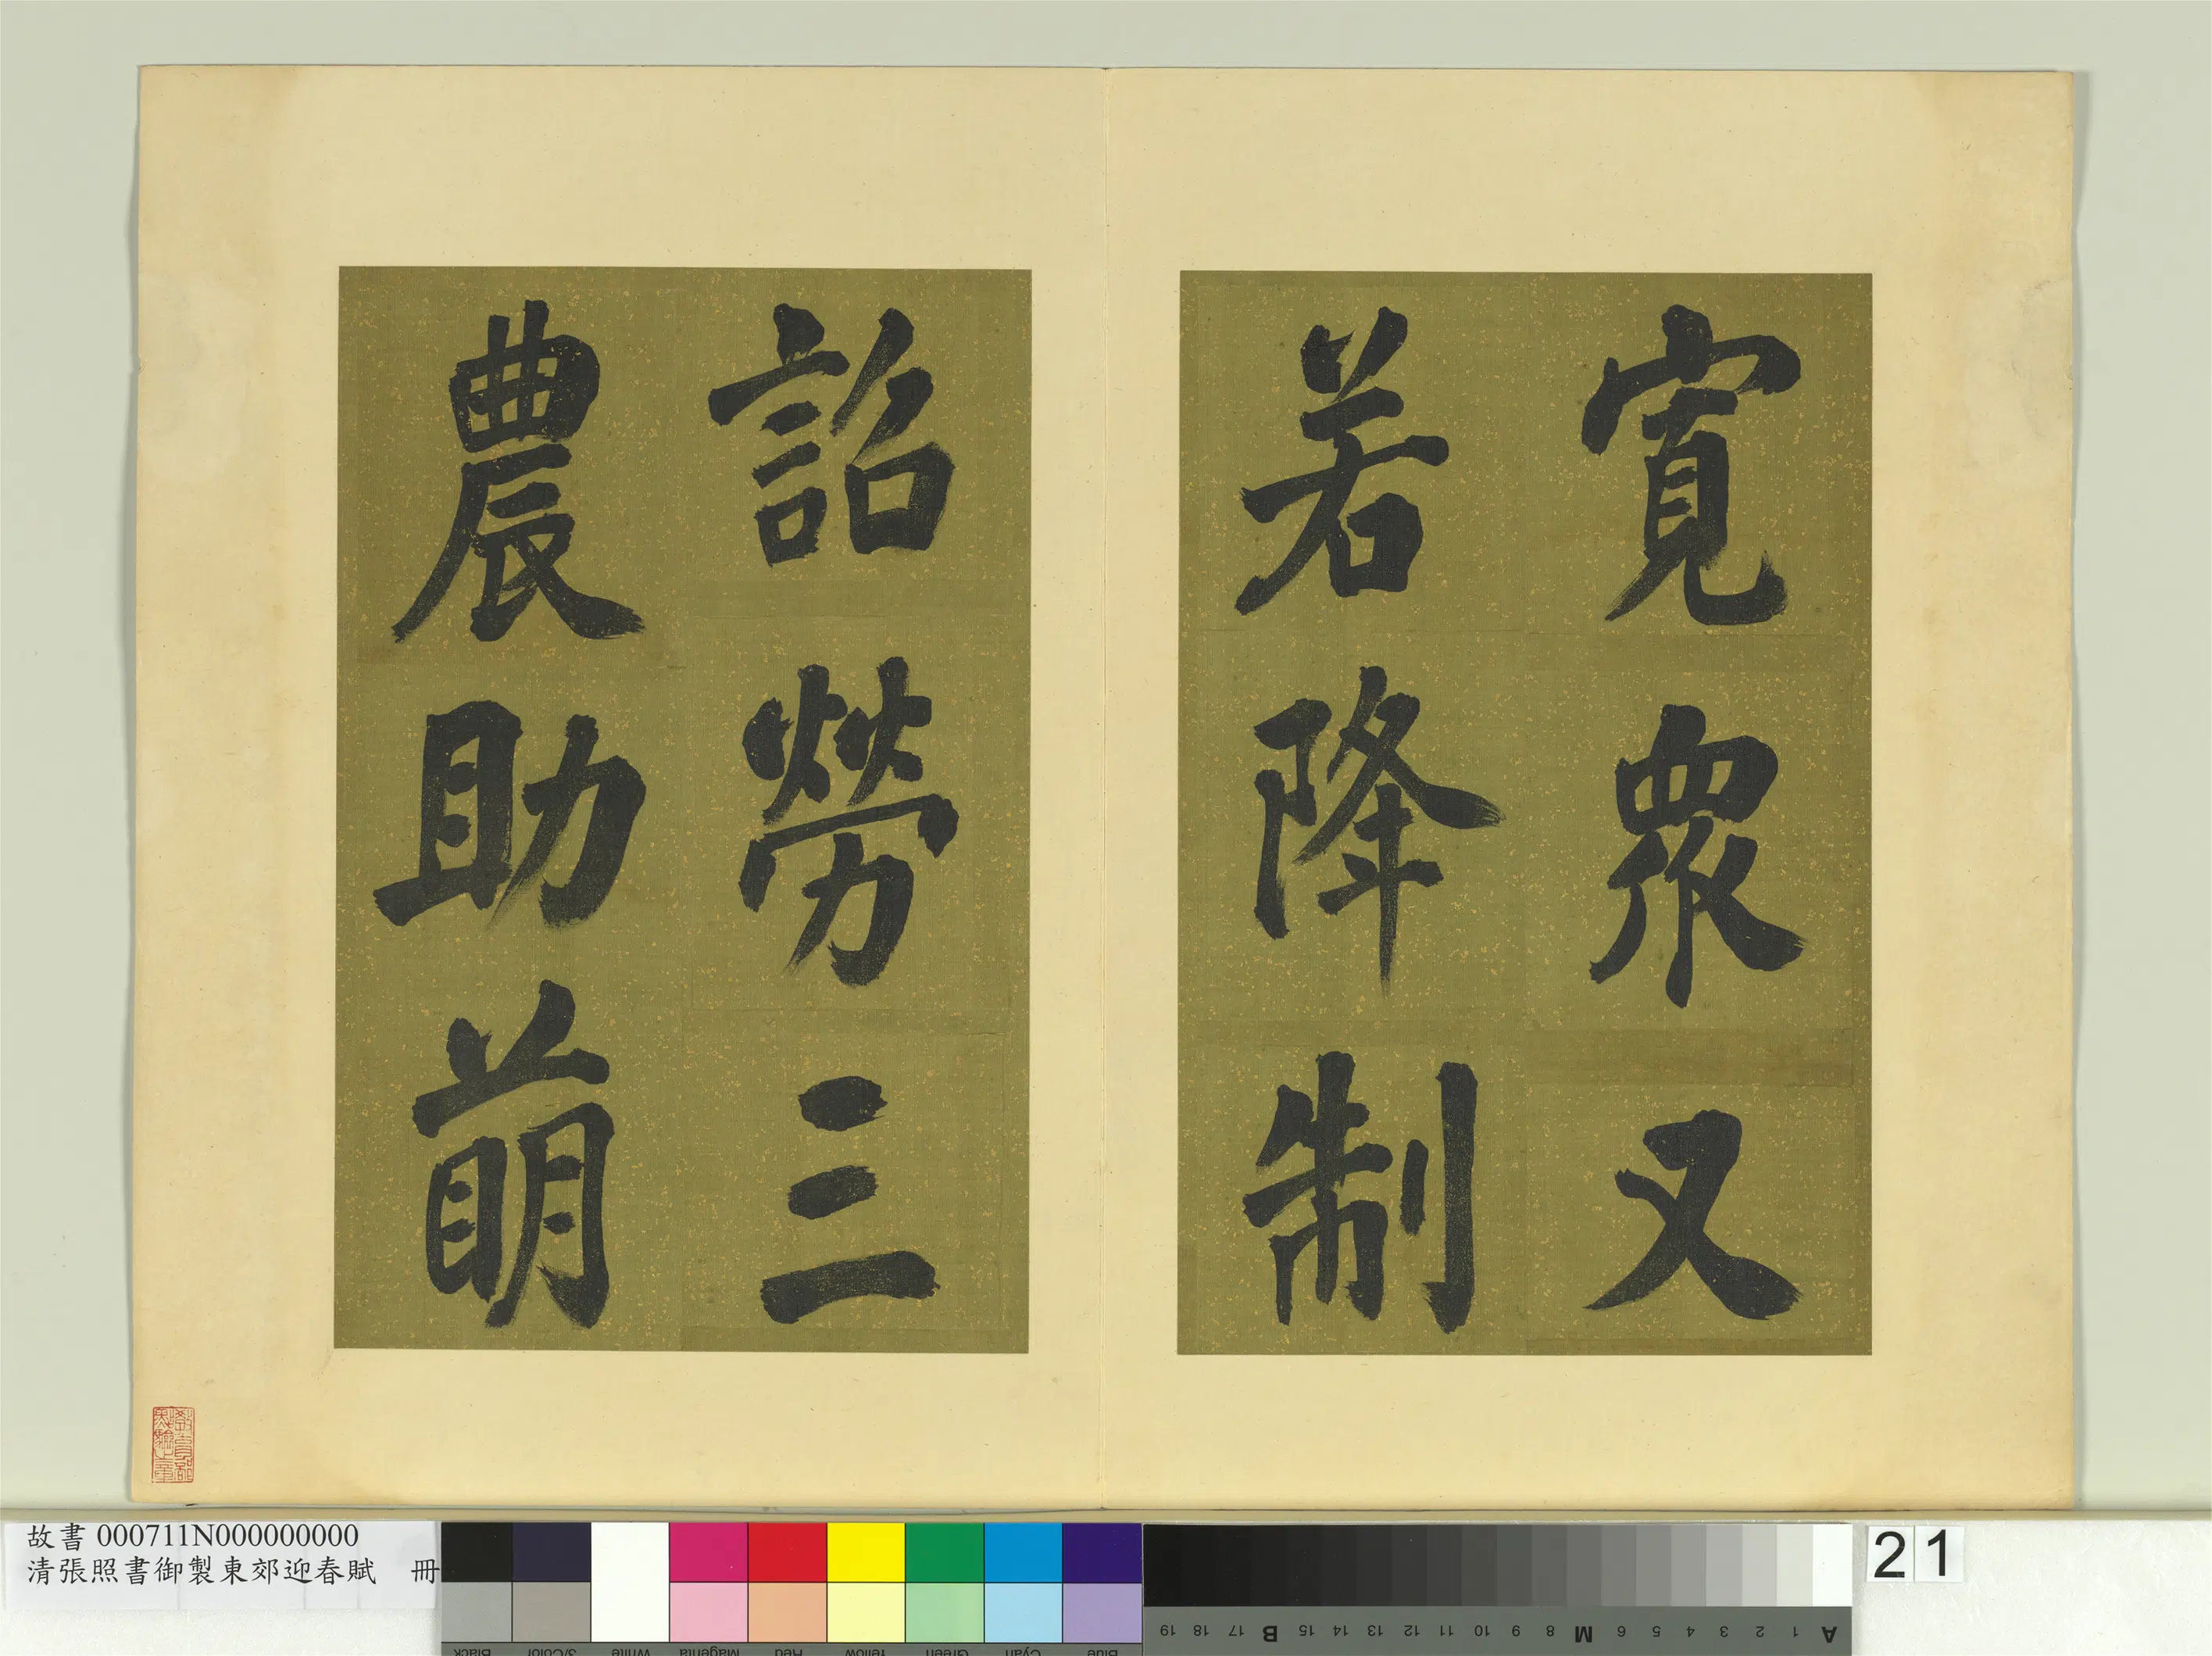 寬眾又
若降制
詔勞三
農助萌
故書 000711N000000000
清張照書御製東郊迎春賦 冊
21
Black
3/Color
White
Magenta
Red
Yellow
Green
Cyan
Blue
19 18 17 B 16 15 14 13 12 11 10 9 8 M 7 6 5 4 3 2 1 A